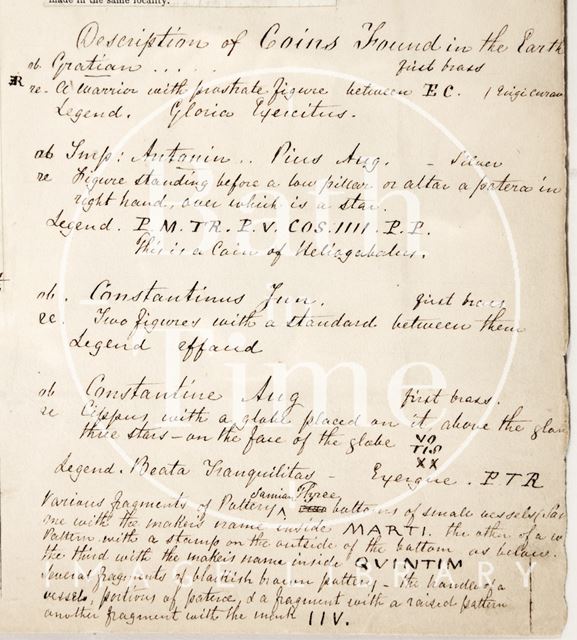 made in the same locality.
Description of Coins Found in the Earth
ob. Gratian ...... first brass
R re. A warrior with prostrate figure between E C.
Legend. Gloria Exercitus.
ob Imp: Antonin.. Pius Aug. - Silver
re Figure standing before a low pillar or altar a patera in
right hand, over which is a star.
Legend. P. M. TR. P. V. COS. IIII. P. P.
This is a Coin of Heliogabalus.
ob. Constantinus Jun. first brass
re. Two figures with a standard between them
Legend effaced
ob Constantine Aug first brass.
re Cippus with a globe placed on it, above the glo
three stars - on the face of the globe VO
TIS
XX
Legend. Beata Tranquilitas - Exergue. P T R
Various fragments of Samian Pottery Three bottoms of small vessels
one with the makers name inside MARTI. the other of a
Pattern with a stamp on the outside of the bottom as below.
the third with the makers name inside QUINTIM
Several fragments of blackish brown pottery - the handle of a
vessel, portions of patera, & a fragment with a raised pattern
another fragment with the mark IIV.
Bath
in
Time
IMAGE LIBRARY